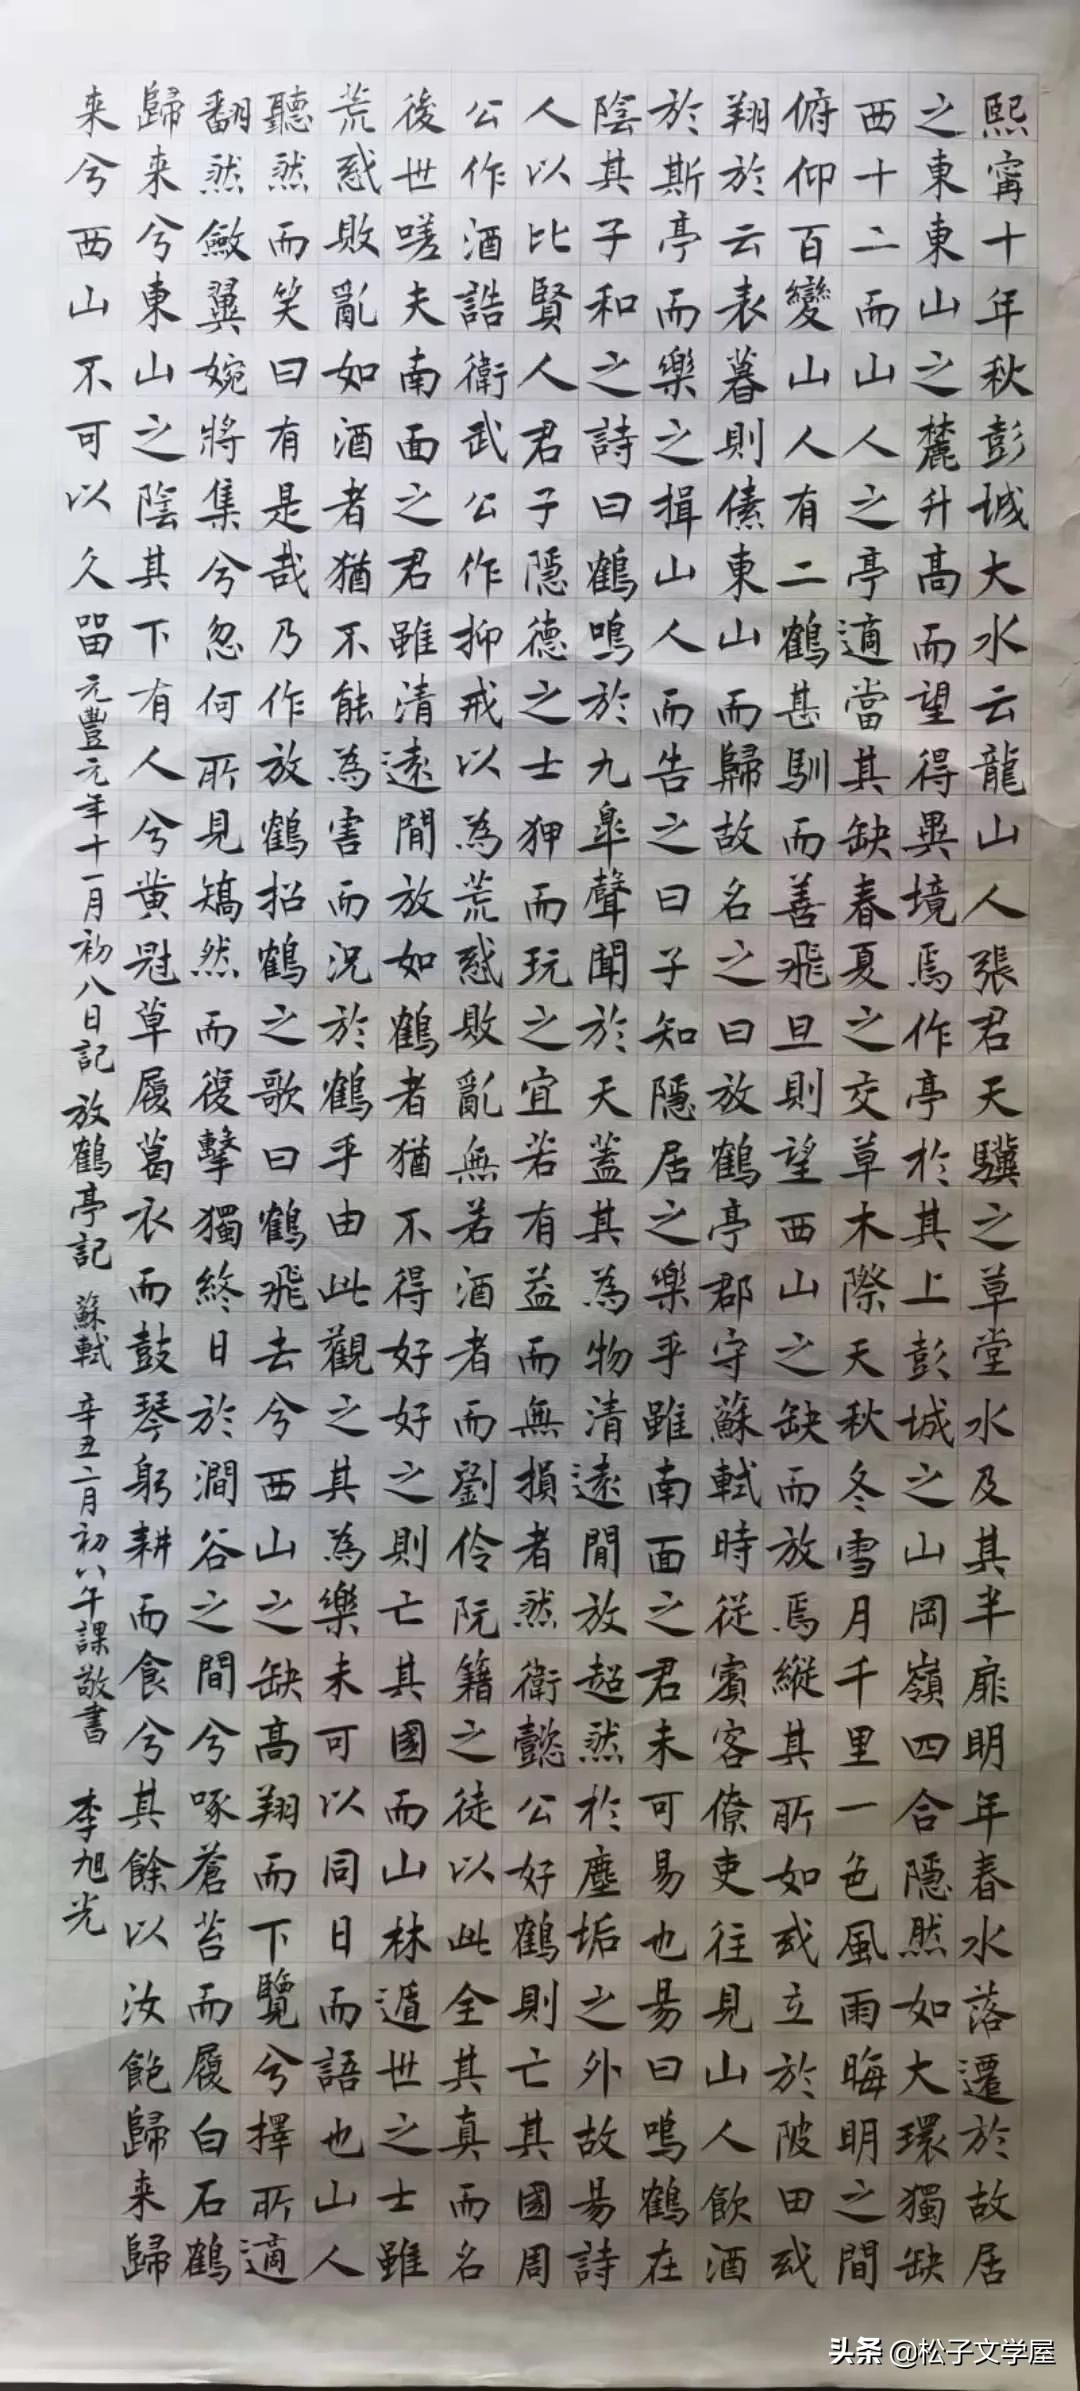 熙寧十年秋彭城大水云龍山人張君天驥之草堂水及其半扉明年春水落遷於故居
之東東山之麓升高而望得異境焉作亭於其上彭城之山岡嶺四合隱然如大環獨缺
西十二而山人之亭適當其缺春夏之交草木際天秋冬雪月千里一色風雨晦明之間
俯仰百變山人有二鶴甚馴而善飛旦則望西山之缺而放焉縱其所如或立於陂田或
翔於云表暮則傃東山而歸故名之曰放鶴亭郡守蘇軾時從賓客僚吏往見山人飲酒
於斯亭而樂之揖山人而告之曰子知隱居之樂乎雖南面之君未可易也易曰鳴鶴在
陰其子和之詩曰鶴鳴於九皋聲聞於天蓋其為物清遠閒放超然於塵垢之外故易詩
人以比賢人君子隱德之士狎而玩之宜若有益而無損者然衛懿公好鶴則亡其國周
公作酒誥衛武公作抑戒以為荒惑敗亂無若酒者而劉伶阮籍之徒以此全其真而名
後世嗟夫南面之君雖清遠閒放如鶴者猶不得好好之則亡其國而山林遁世之士雖
荒惑敗亂如酒者猶不能為害而況於鶴乎由此觀之其為樂未可以同日而語也山人
聽然而笑曰有是哉乃作放鶴招鶴之歌曰鶴飛去兮西山之缺高翔而下覽兮擇所適
翻然斂翼婉將集兮忽何所見矯然而復擊獨終日於澗谷之間兮啄蒼苔而履白石鶴
歸来兮東山之陰其下有人兮黃冠草履葛衣而鼓琴躬耕而食兮其餘以汝飽歸来歸
来兮西山不可以久留 元豐元年十一月初八日記 放鶴亭記 蘇軾 辛丑二月初八午課敬書 李旭光
头条 @松子文学屋